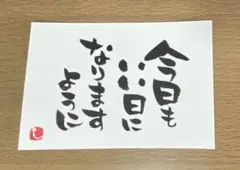 今日も
いい日に
なります
ように